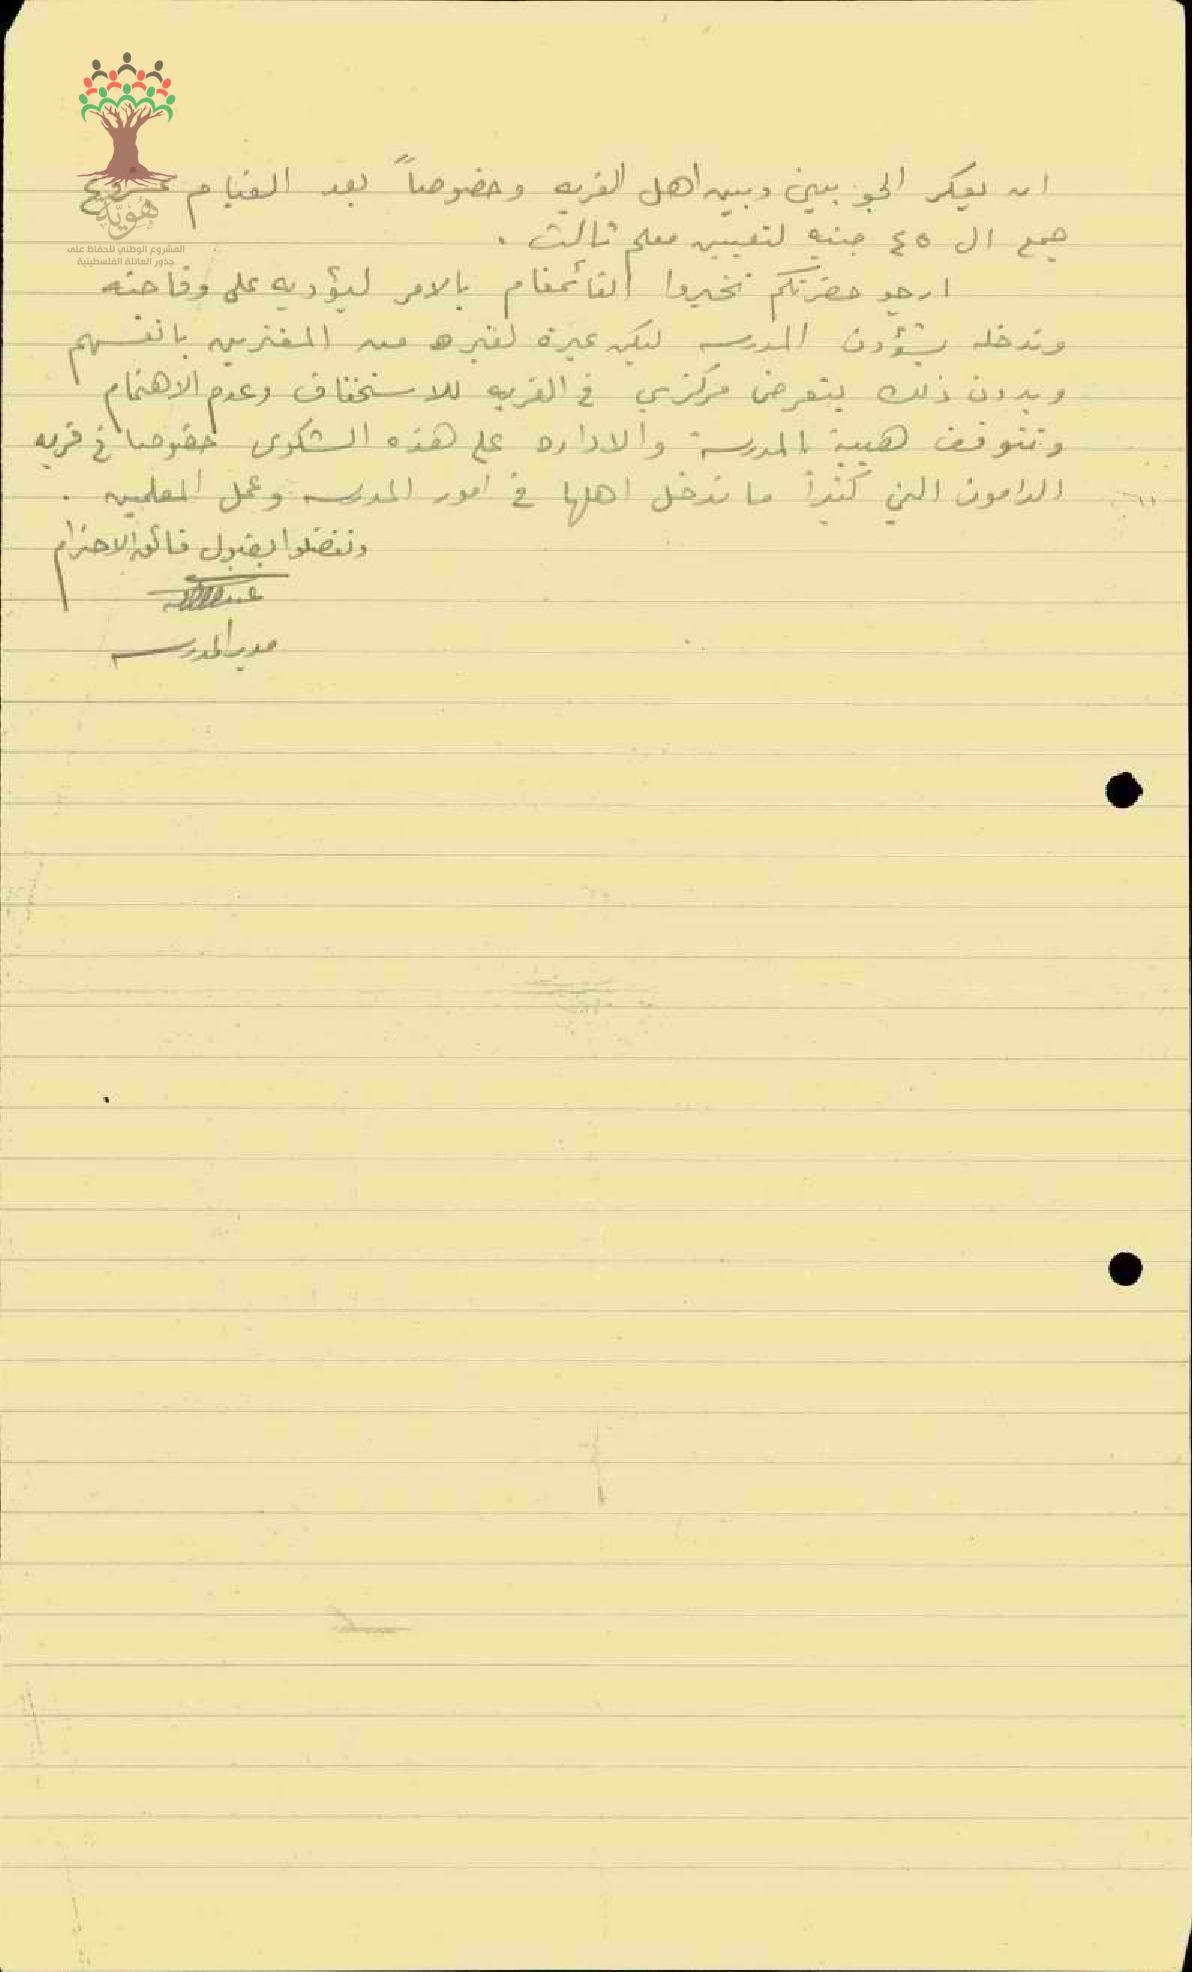 هُويَّة
المشروع الوطني للحفاظ على
جذور العائلة الفلسطينية
ان يعكر الجو بيني وبين اهل القريه وخصوصاً بعد القيام بمشروع
جمع ال ٤٥ جنيه لتعيين معلم ثالث .
ارجو حضرتكم تخبروا القائمقام بالامر ليؤدبه على وقاحته
وتدخله بشؤون المدرسه ليكن عبرة لغيره من المغترين بانفسهم
وبدون ذلك يتعرض مركزي في القريه للاستخفاف وعدم الاهتمام
وتتوقف هيبة المدرسة والاداره على هذه الشكوى خصوصا في قريه
الدامون التي كثيراً ما تدخل اهلها في امور المدرسه وعمل المعلمين .
وتفضلوا بقبول فائق الاحترام
مدير المدرسه